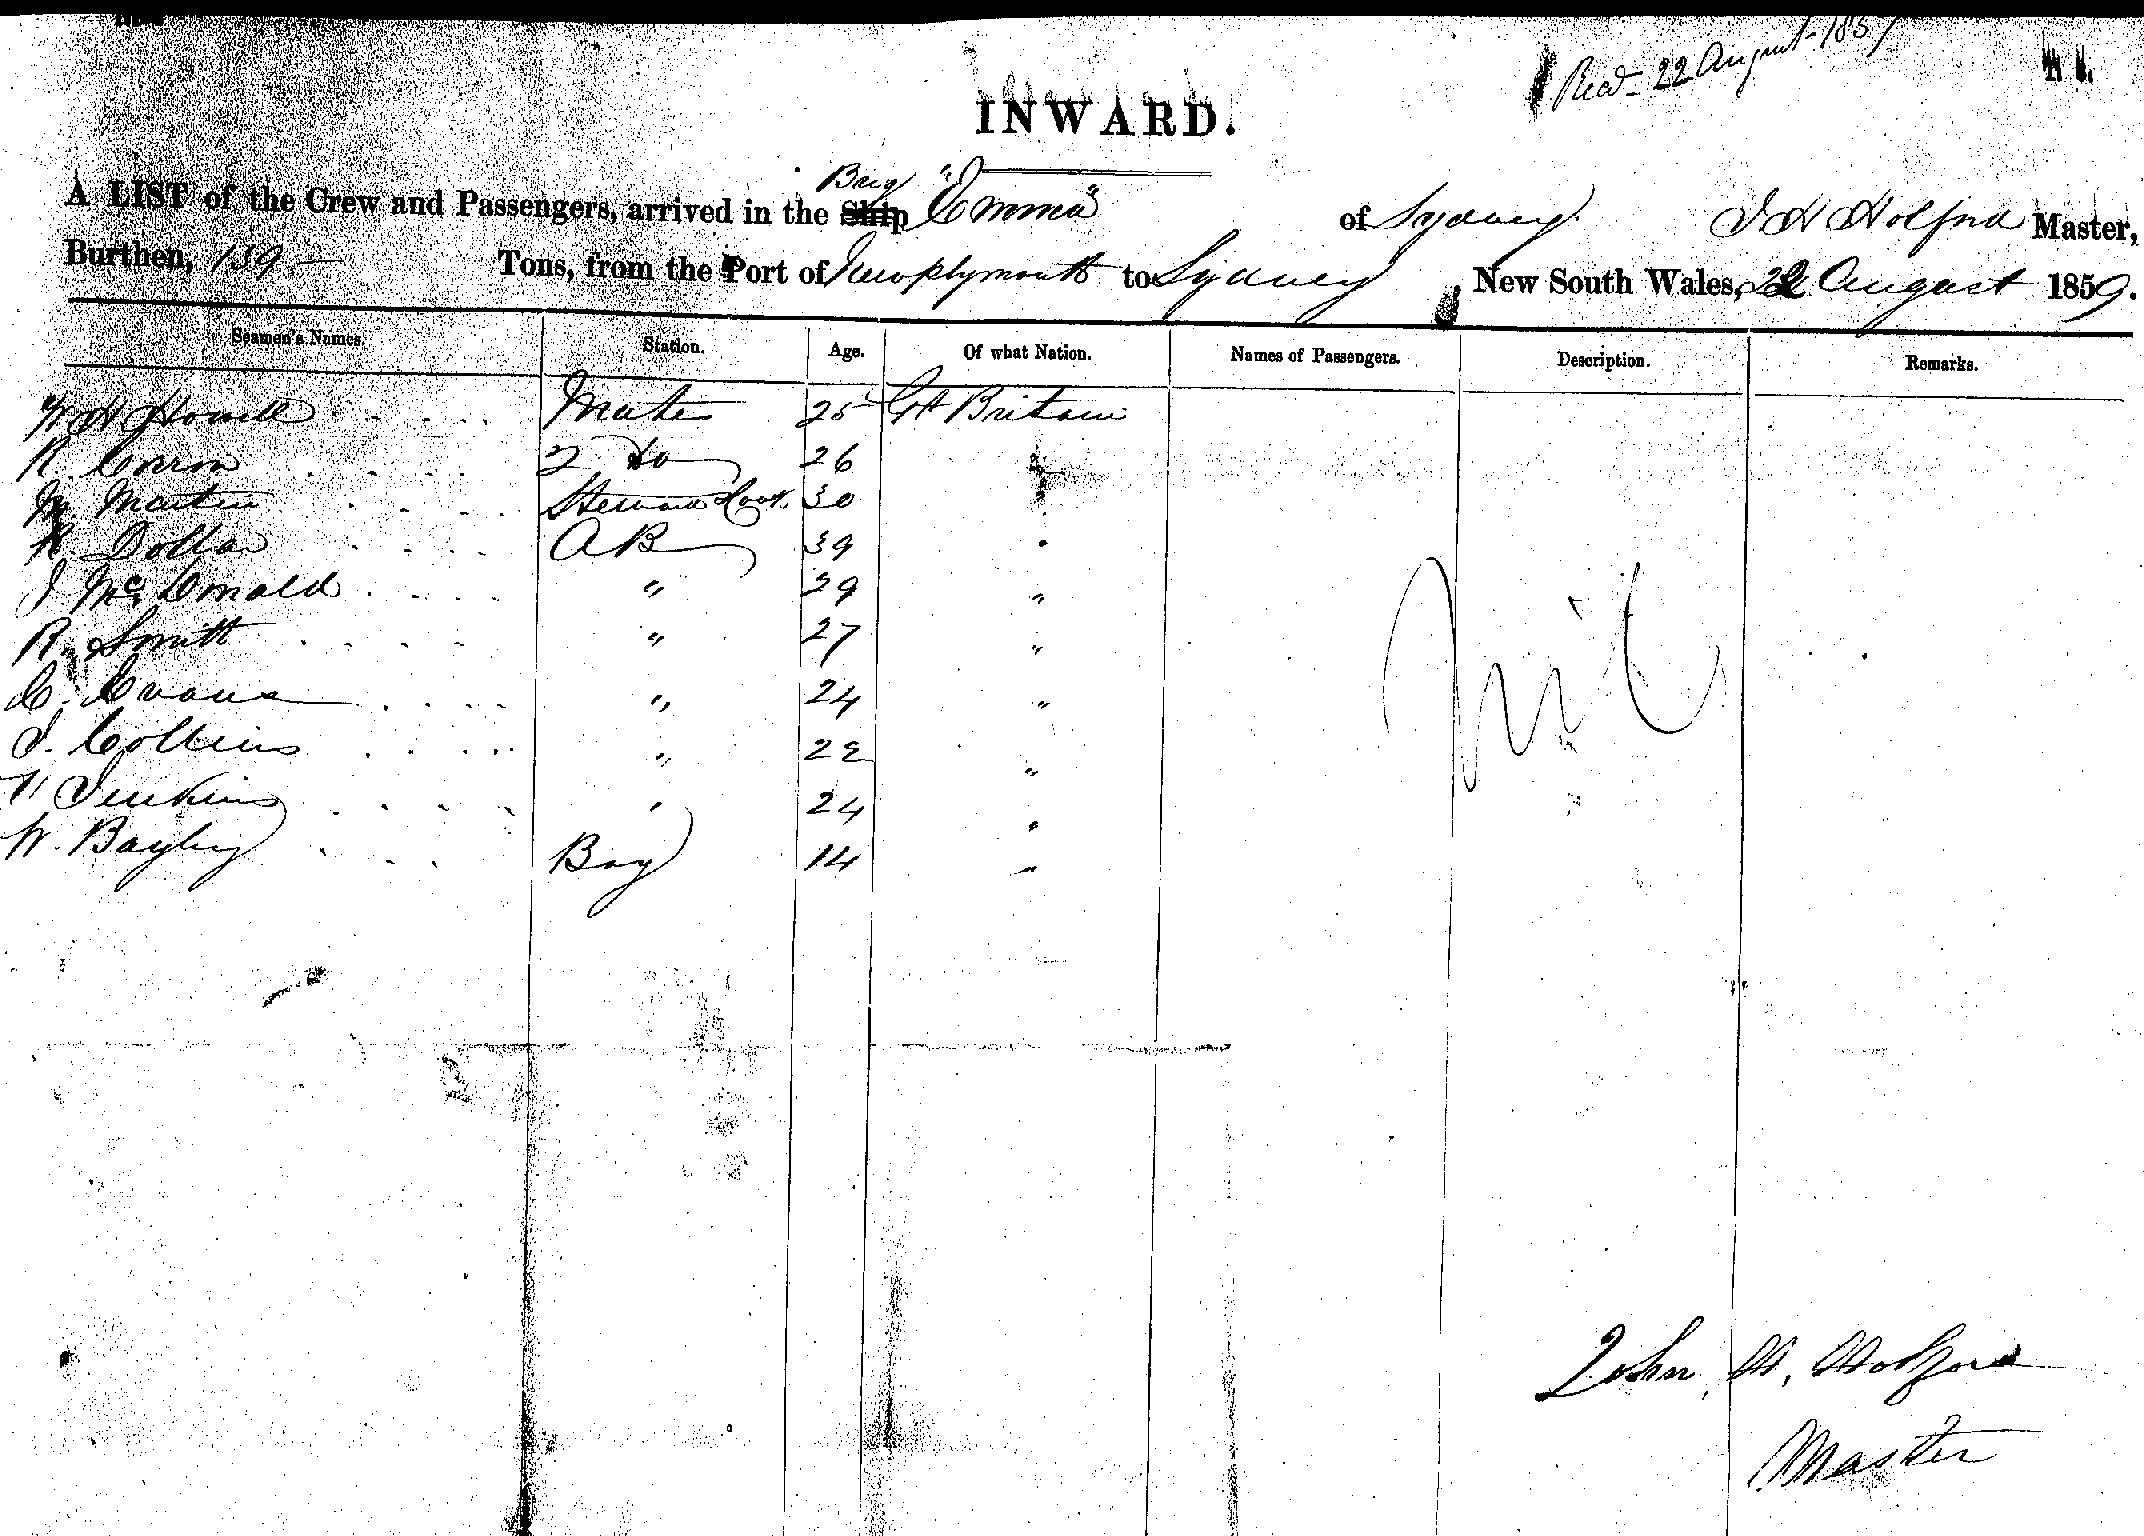 Recd 22 August 1859
INWARD.
A LIST of the Crew and Passengers, arrived in the Ship Brig "Emma" of Sydney J H Holford Master,
Burthen, 139 Tons, from the Port of New plymouth to Sydney, New South Wales, 22 August 1859.
Seamen's Names. Station. Age. Of what Nation. Names of Passengers. Description. Remarks.
W H Howell Mate 25 Gt Britain
R. 2 do 26 "
Martin Steward Cook. 30 "
R. Dollar AB 39 "
J McDonald " 29 "
R. Smith " 27 "
C. Evans " 24 "
J. Collins " 22 "
Jenkins " 24 "
W. Bayley Boy 14 "
Nil
John, H, Holford
Master